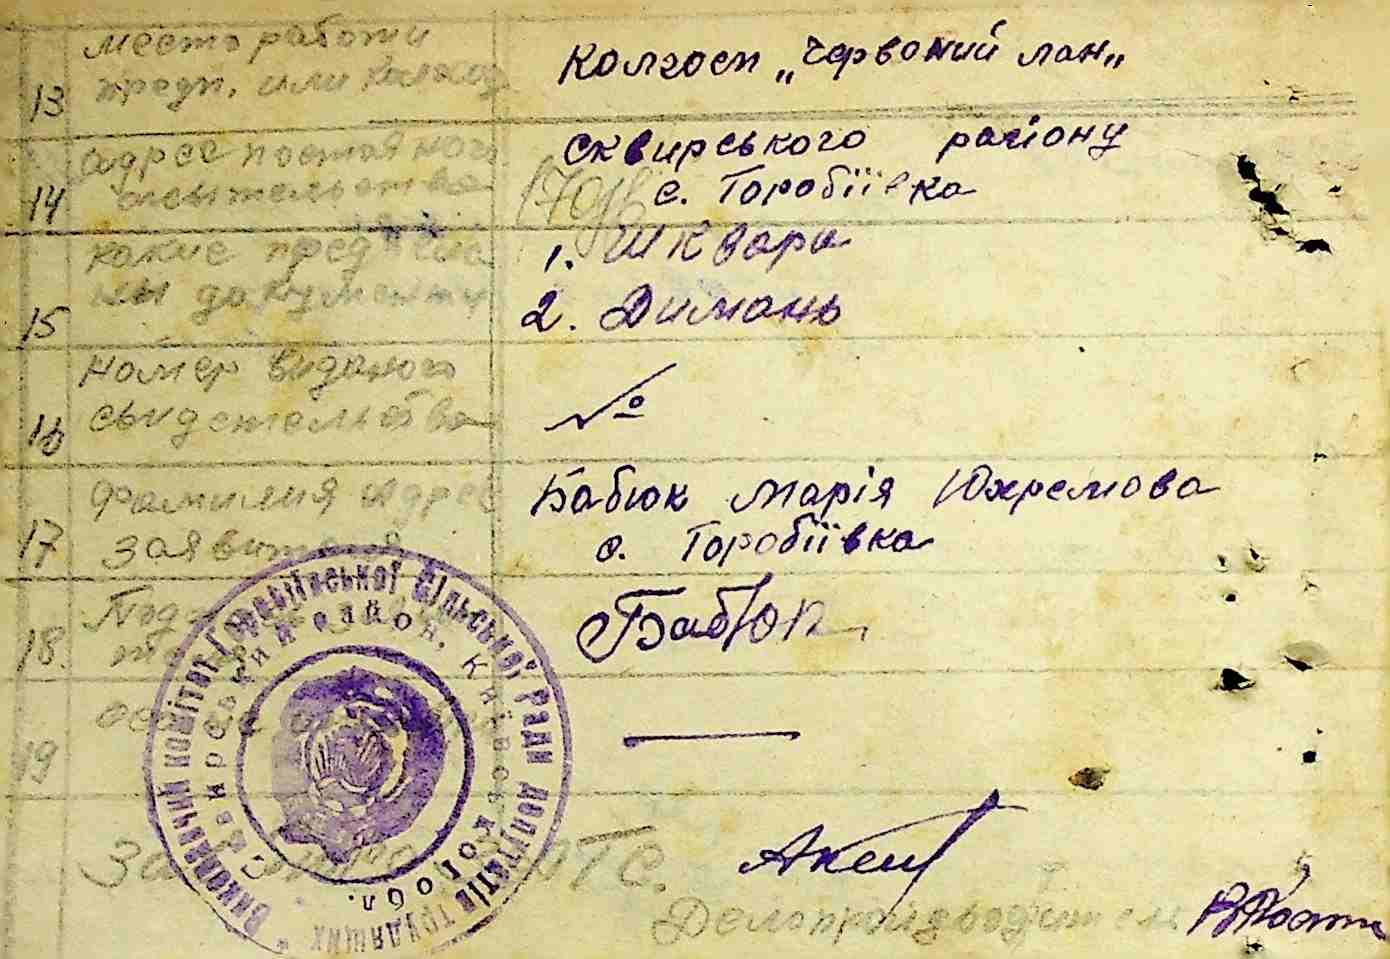 13 место работы
предп. или колхоз
Колгосп „Червоний лан„
14 адрес постоянного
жительства
Сквирського району
с. Горобіївка
15 какие предъявле
ны документы
1. Шквара
2. Димань
16 номер виданого
свидетельства
№
17 фамилия адрес
заявителя
Бабюк Марія Юхремова
с. Горобіївка
18.
Бабюк
19
Виконавчий комітет Горобіївської Сільської Ради депутатів трудящих
Сквирський район, Київської обл.
АТС.
Делопроизводитель